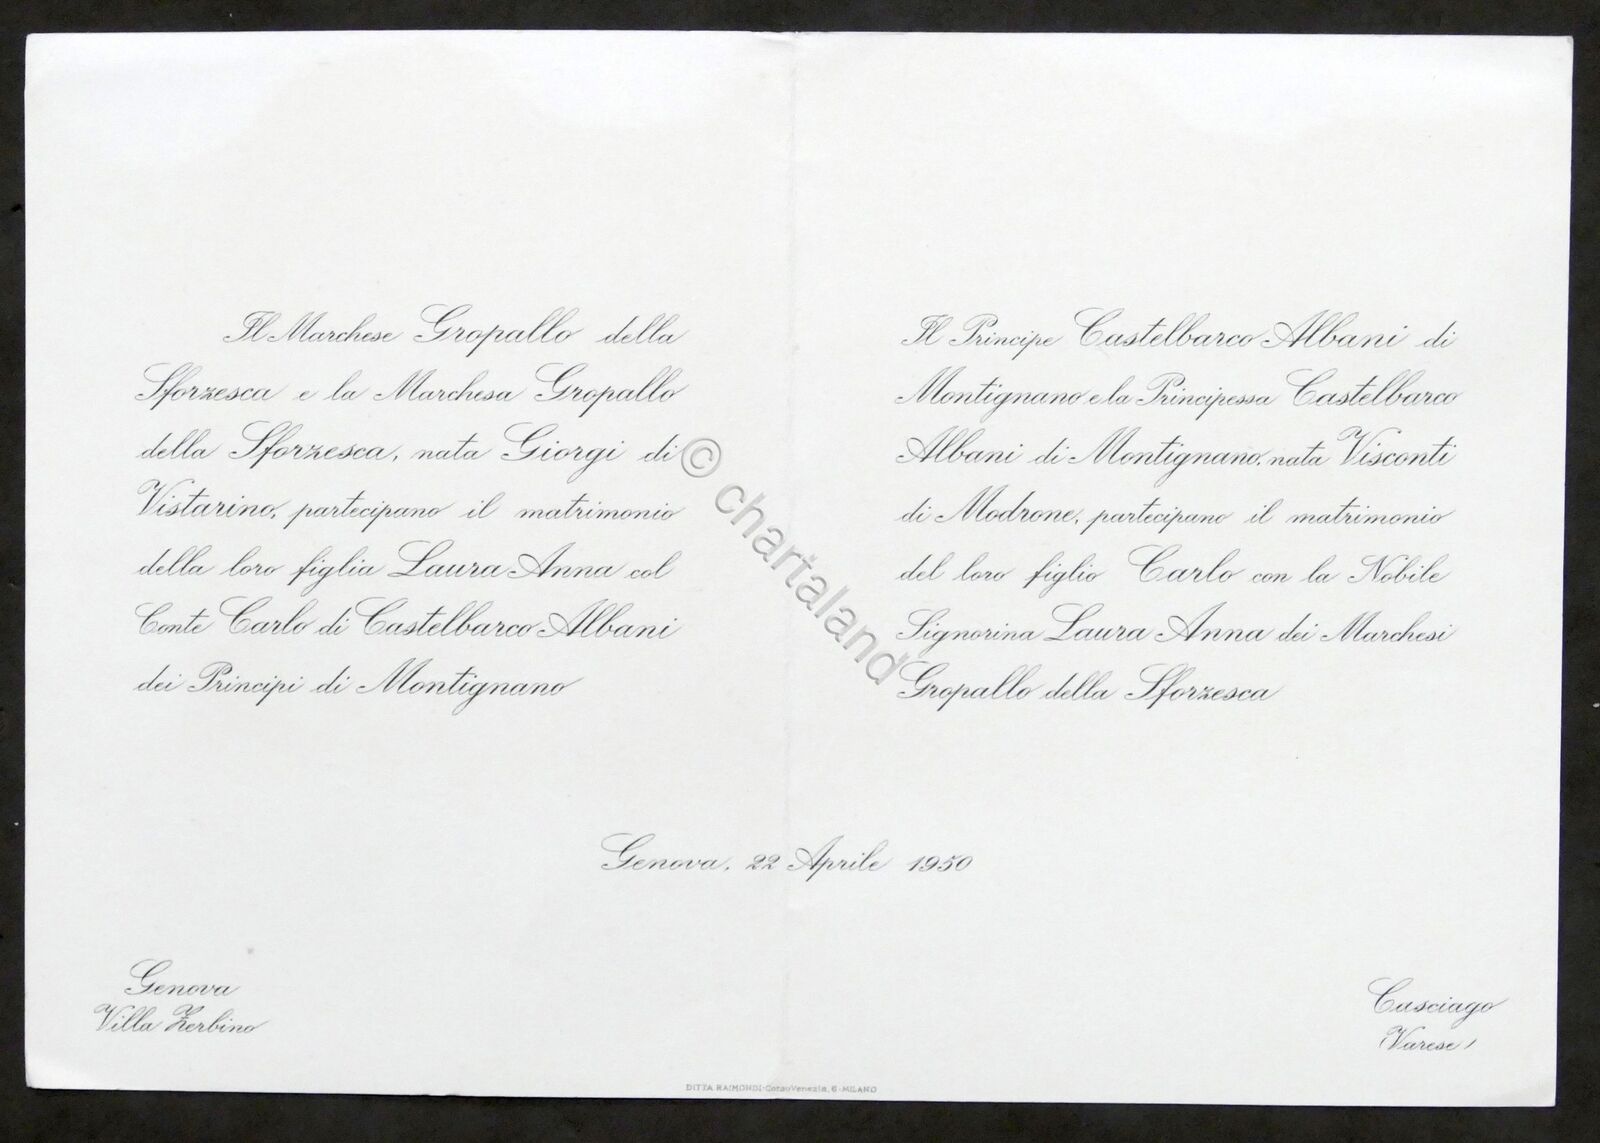 Il Marchese Gropallo della
Sforzesca e la Marchesa Gropallo
della Sforzesca, nata Giorgi di
Vistarino, partecipano il matrimonio
della loro figlia Laura Anna col
Conte Carlo di Castelbarco Albani
dei Principi di Montignano
Il Principe Castelbarco Albani di
Montignano e la Principessa Castelbarco
Albani di Montignano, nata Visconti
di Modrone, partecipano il matrimonio
del loro figlio Carlo con la Nobile
Signorina Laura Anna dei Marchesi
Gropallo della Sforzesca
Genova, 22 Aprile 1950
Genova
Villa Zerbino
Casciago
(Varese)
DITTA RAIMONDI-Corso Venezia, 6-MILANO
© chartaland